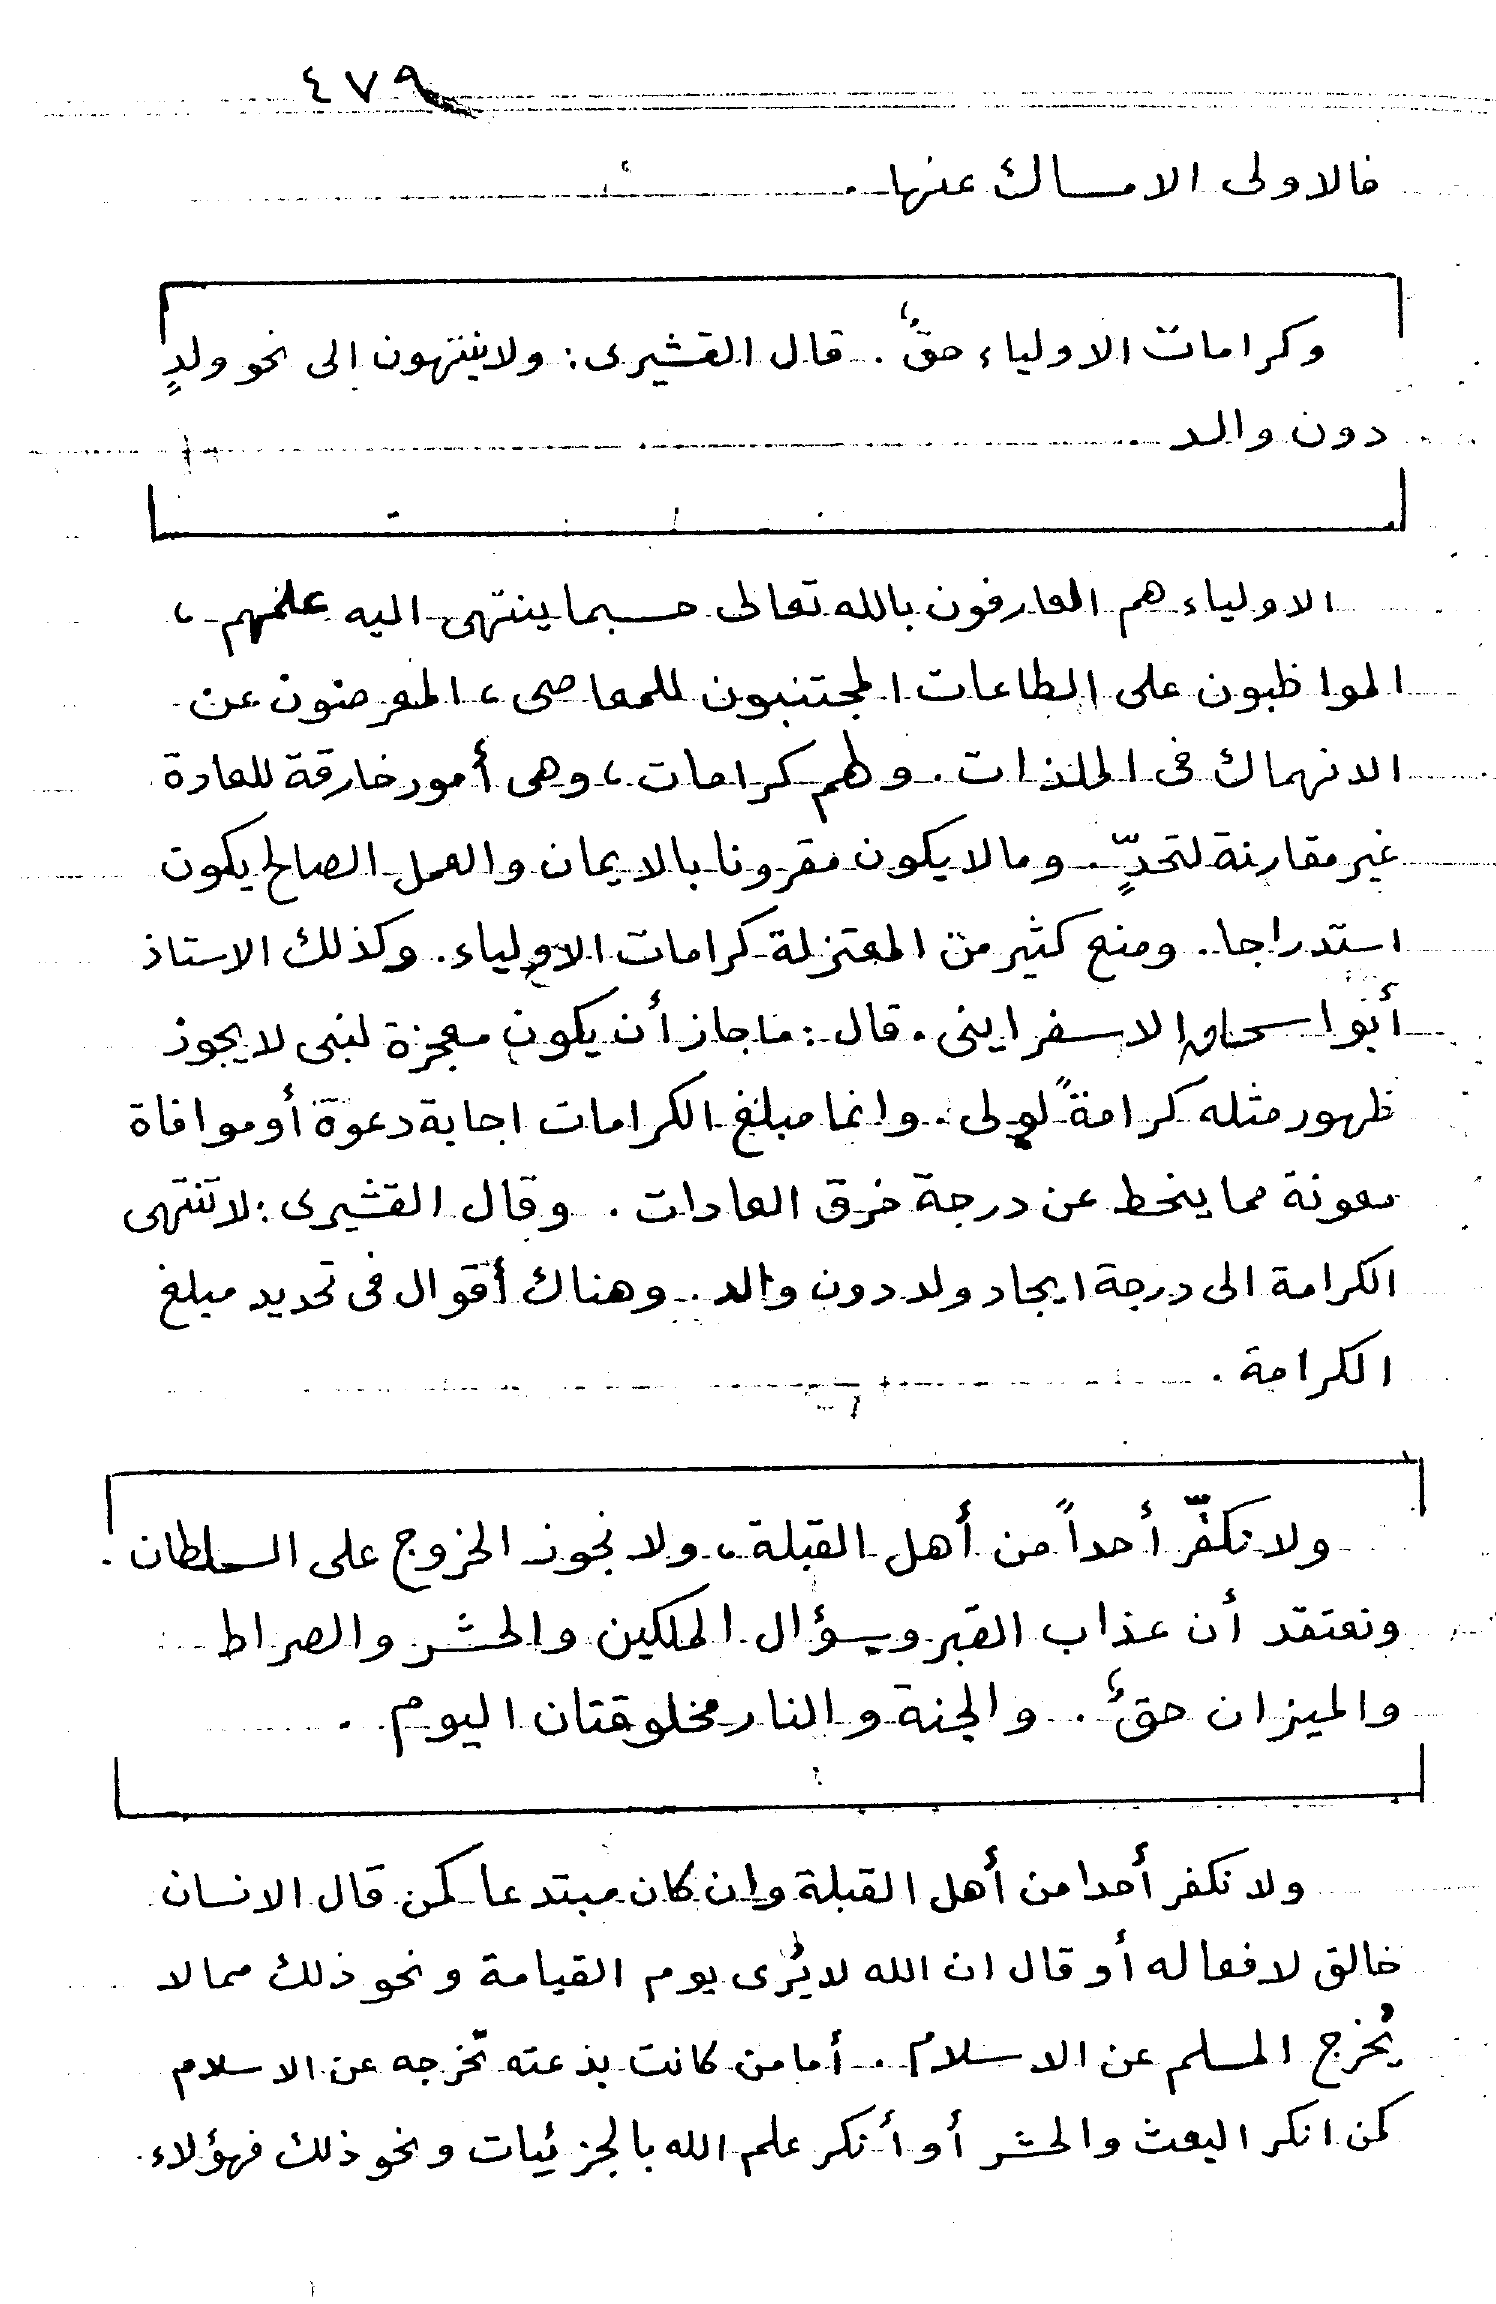 ٤٧٩
فالاولى الامساك عنها .
وكرامات الاولياء حقٌ . قال القشيرى : ولا ينتهون إلى نحو ولدٍ
دون والد .
الاولياء هم العارفون بالله تعالى حسبما ينتهى اليه علمهم ،
المواظبون على الطاعات المجتنبون للمعاصى ، المعرضون عن
الانهماك فى الملذات . ولهم كرامات ، وهى أمور خارقة للعادة
غير مقارنة لتحدٍّ . وما لا يكون مقرونا بالايمان والعمل الصالح يكون
استدراجا . ومنع كثير من المعتزلة كرامات الاولياء . وكذلك الاستاذ
أبو اسحاق الاسفراينى . قال : ما جاز أن يكون معجزة لنبى لا يجوز
ظهور مثله كرامةً لولى . وانما مبلغ الكرامات اجابة دعوة أو موافاة
معونة مما ينحط عن درجة خرق العادات . وقال القشيرى : لا تنتهى
الكرامة الى درجة ايجاد ولد دون والد . وهناك أقوال فى تحديد مبلغ
الكرامة .
ولا نكفّر أحداً من أهل القبلة ، ولا نجوز الخروج على السلطان .
ونعتقد أن عذاب القبر وسؤال الملكين والحشر والصراط
والميزان حقٌ . والجنة والنار مخلوقتان اليوم .
ولا نكفر أحدا من أهل القبلة وان كان مبتدعا كمن قال الانسان
خالق لافعاله أو قال ان الله لا يُرى يوم القيامة ونحو ذلك مما لا
يُخرج المسلم عن الاسلام . أما من كانت بدعته تخرجه عن الاسلام
كمن انكر البعث والحشر أو أنكر علم الله بالجزئيات ونحو ذلك فهؤلاء